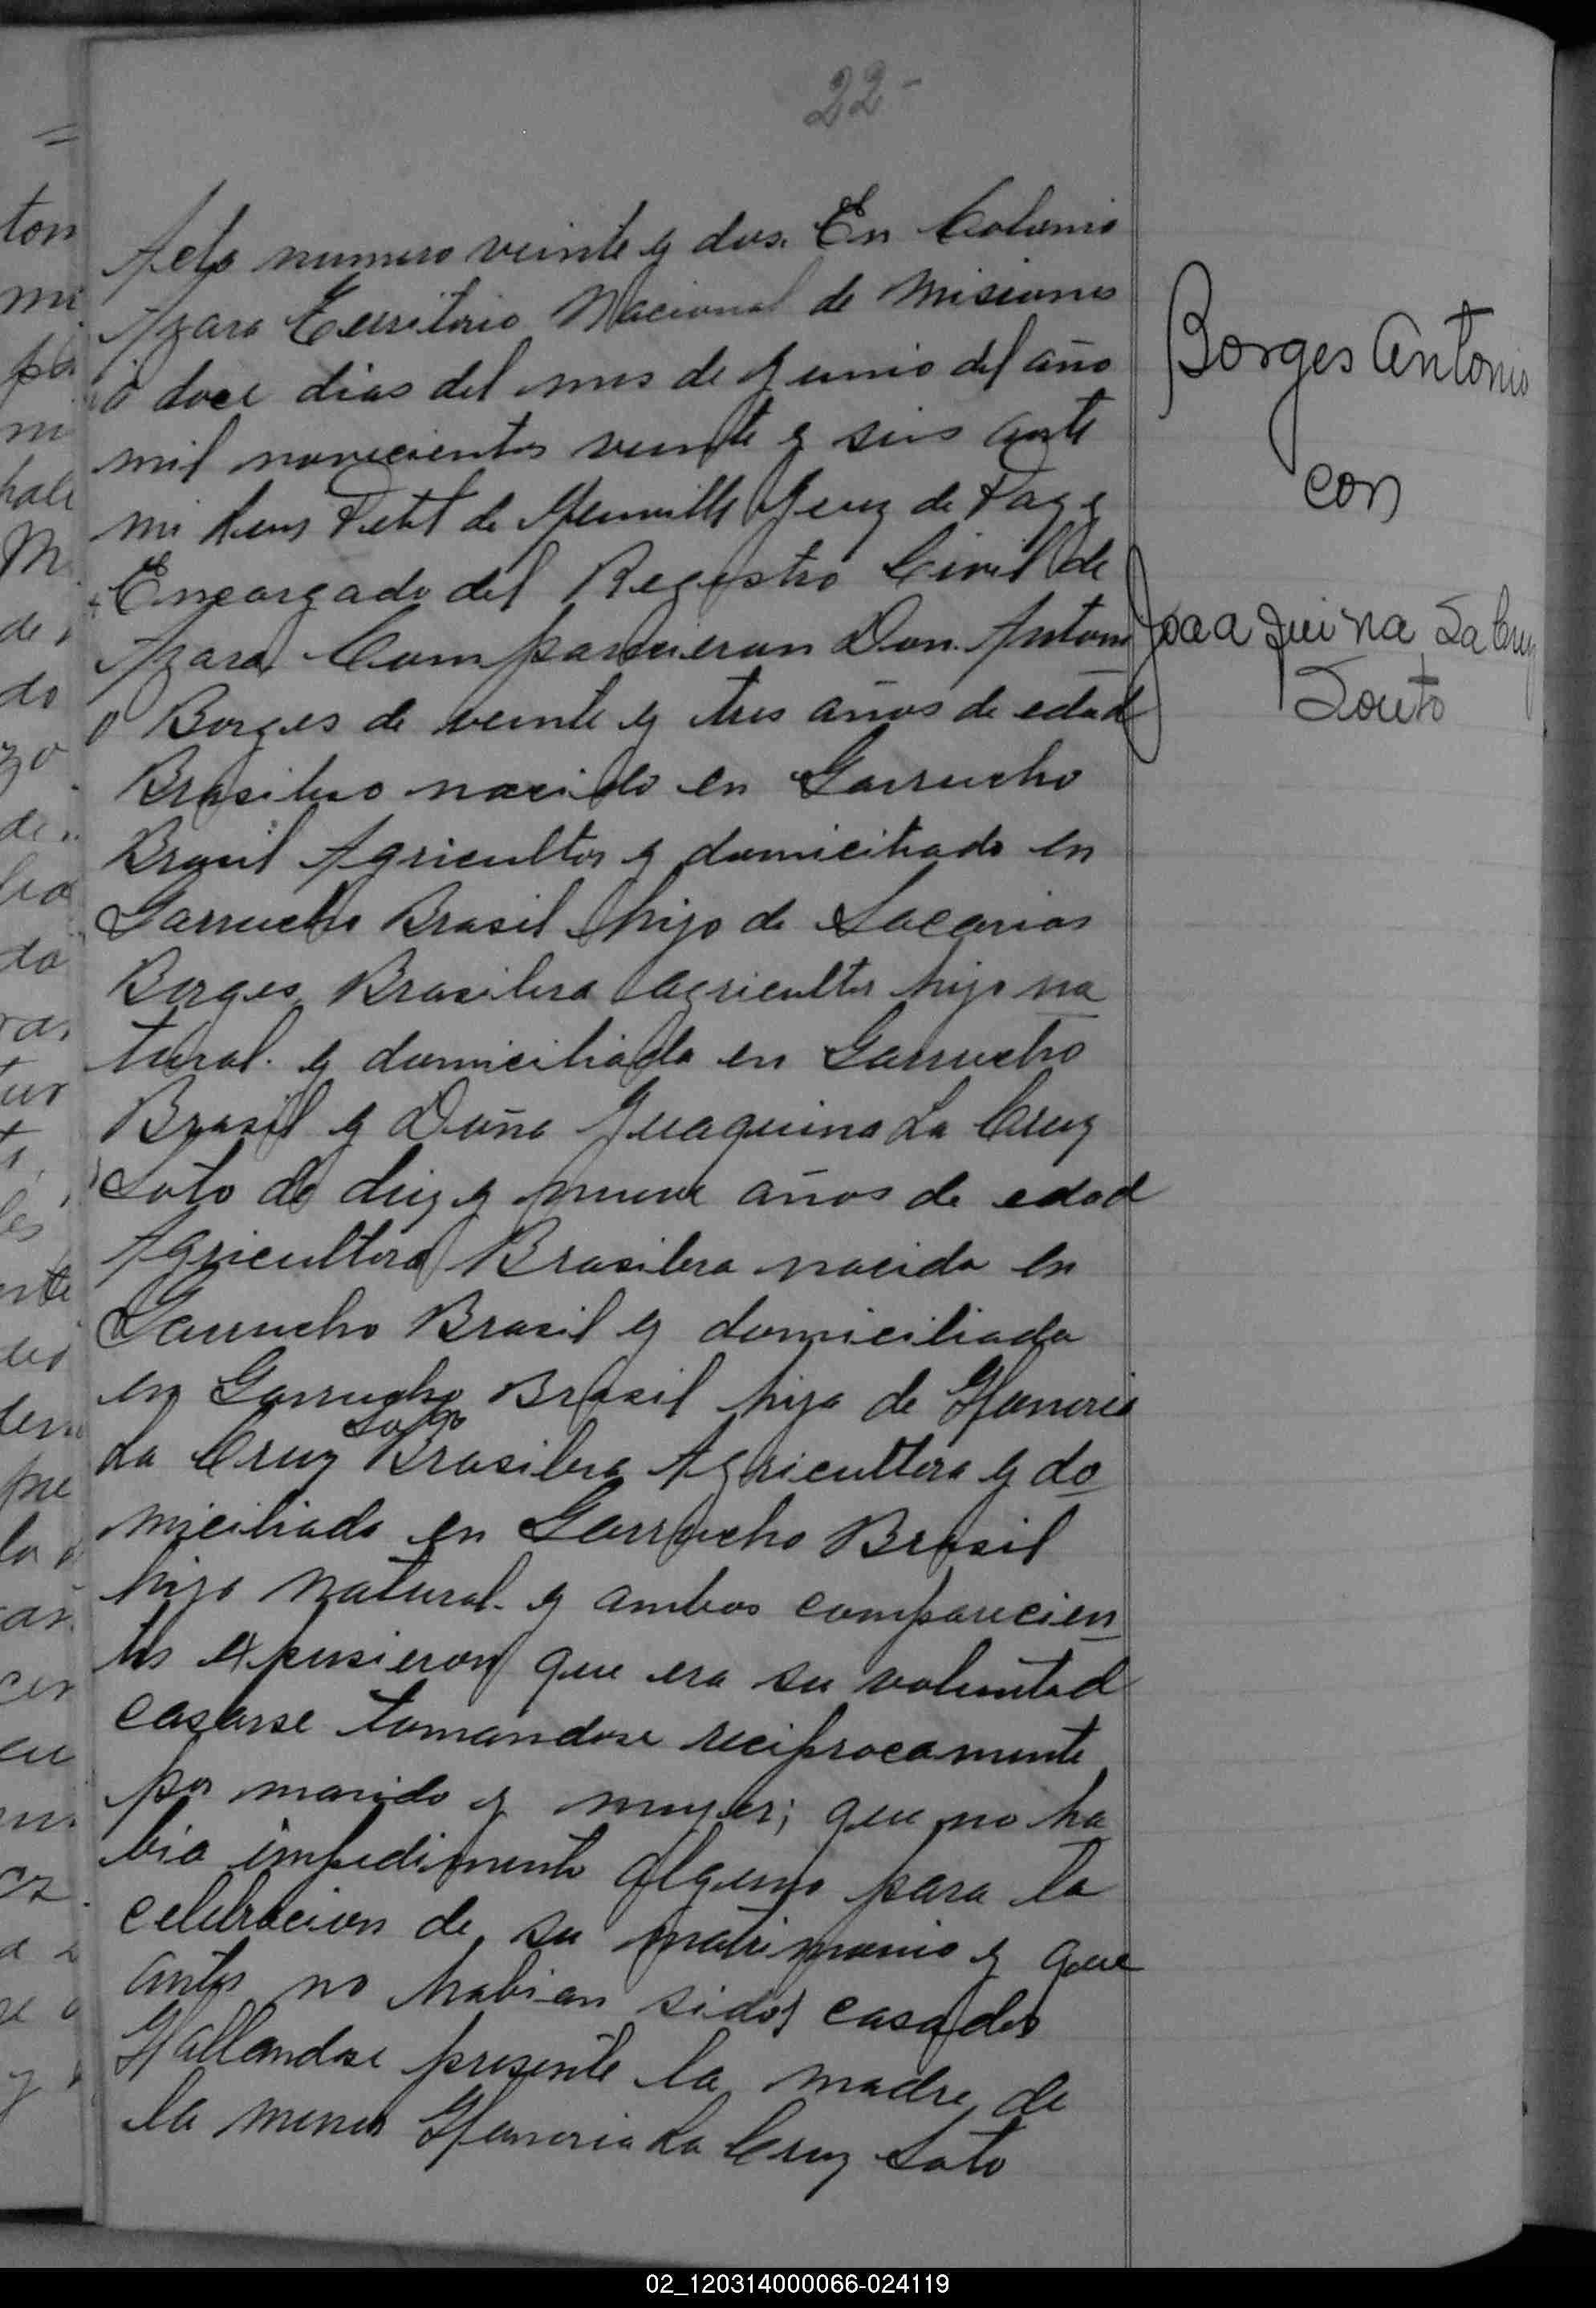 22-
Acta numero veinte y dos. En Colonia
Azara Territorio Nacional de Misiones
a doce dias del mes de Junio del año
mil novecientos veinte y seis ante
mi Petit de Juez de Paz y
Encargado del Registro Civil de
Azara Comparecieron Don. Antoni
o Borges de veinte y tres años de edad
Brasilero nacido en Garrucho
Brasil Agricultor y domiciliado en
Garrucho Brasil hijo de Sacarias
Borges Brasilera agricultor hijo na
tural. y domiciliada en Garrucho
Brasil y Doña Juaquina La Cruz
Soto de diez y nueve años de edad
Agricultora Brasilera nacida en
Garrucho Brasil y domiciliada
en Garrucho Brasil hija de Honoria
La Cruz Soto Brasilera Agricultora y do
miciliada en Garrucho Brasil
hija natural. y ambos comparecien
tes expusieron que era su voluntad
casarse tomandose reciprocamente
por marido y mujer; que no ha
bia impedimento alguno para la
celebracion de su matrimonio y que
antes no habian sidos casados
Hallandose presente la madre de
la menor Honoria La Cruz Soto
Borges Antonio
con
Joaaquina La Cruz
Souto
02_120314000066-024119